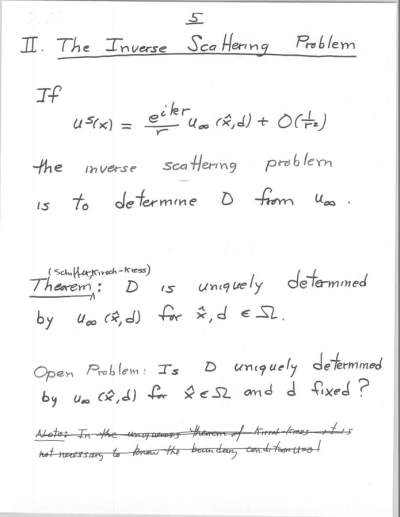 5
II. The Inverse Scattering Problem
If
uˢ(x) = e^{ikr}/r u∞(x̂,d) + O(1/r²)
the inverse scattering problem
is to determine D from u∞.
(Schiffer, Kirsch-Kress)
Theorem: D is uniquely determined
by u∞(x̂,d) for x̂,d ∈ Ω.
Open Problem: Is D uniquely determined
by u∞(x̂,d) for x̂ ∈ Ω and d fixed?
Note: In the uniqueness theorem of Kirsch-Kress it is
not necessary to know the boundary condition